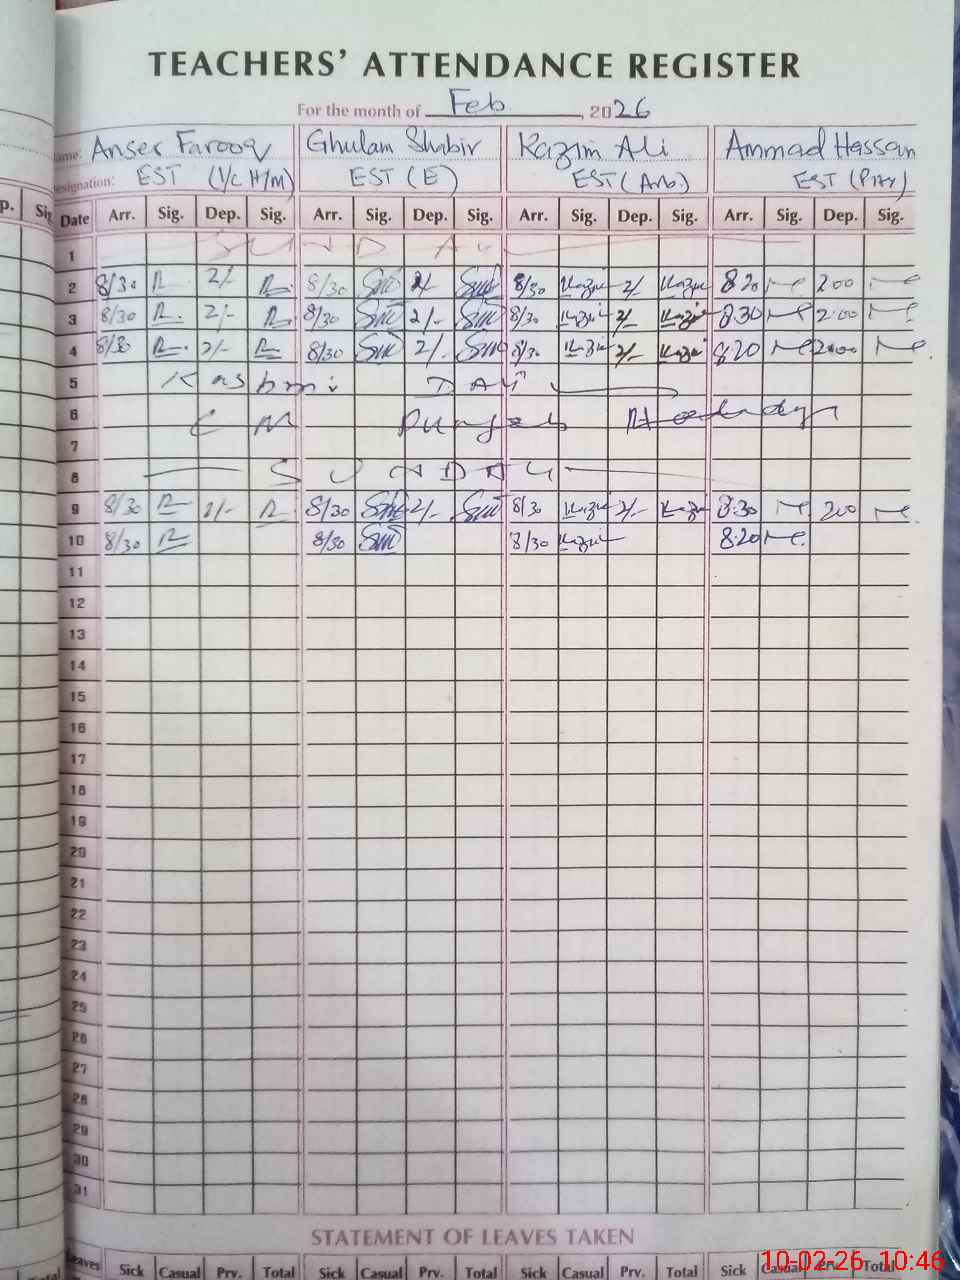 TEACHERS' ATTENDANCE REGISTER
For the month of Feb, 2026
Name: Anser Farooq Ghulam Shabir Kazim Ali Ammad Hassan
Designation: EST (I/C H/M) EST (E) EST (Arb.) EST (Phy)
p. Sig Date Arr. Sig. Dep. Sig. Arr. Sig. Dep. Sig. Arr. Sig. Dep. Sig. Arr. Sig. Dep. Sig.
1 SUNDAY
2 8/30 2/- 8/30 2/- 8/30 Kazim 2/- Kazim 8 20 200
3 8/30 2/- 8/30 2/- 8/30 Kazim 2/- Kazim 8.30 2.00
4 8/30 2/- 8/30 2/- 8/30 Kazim 2/- Kazim 8.20 2.00
5 Kashmir DAY
6 CM Punjab
7
8 SUNDAY
9 8/30 2/- 8/30 2/- 8/30 Kazim 2/- Kazim 8.30 200
10 8/30 8/30 8/30 Kazim 8.20
11
12
13
14
15
16
17
18
19
20
21
22
23
24
25
26
27
28
29
30
31
STATEMENT OF LEAVES TAKEN
Leaves Sick Casual Prv. Total Sick Casual Prv. Total Sick Casual Prv. Total Sick Casual Prv. Total
10-02-26 10:46